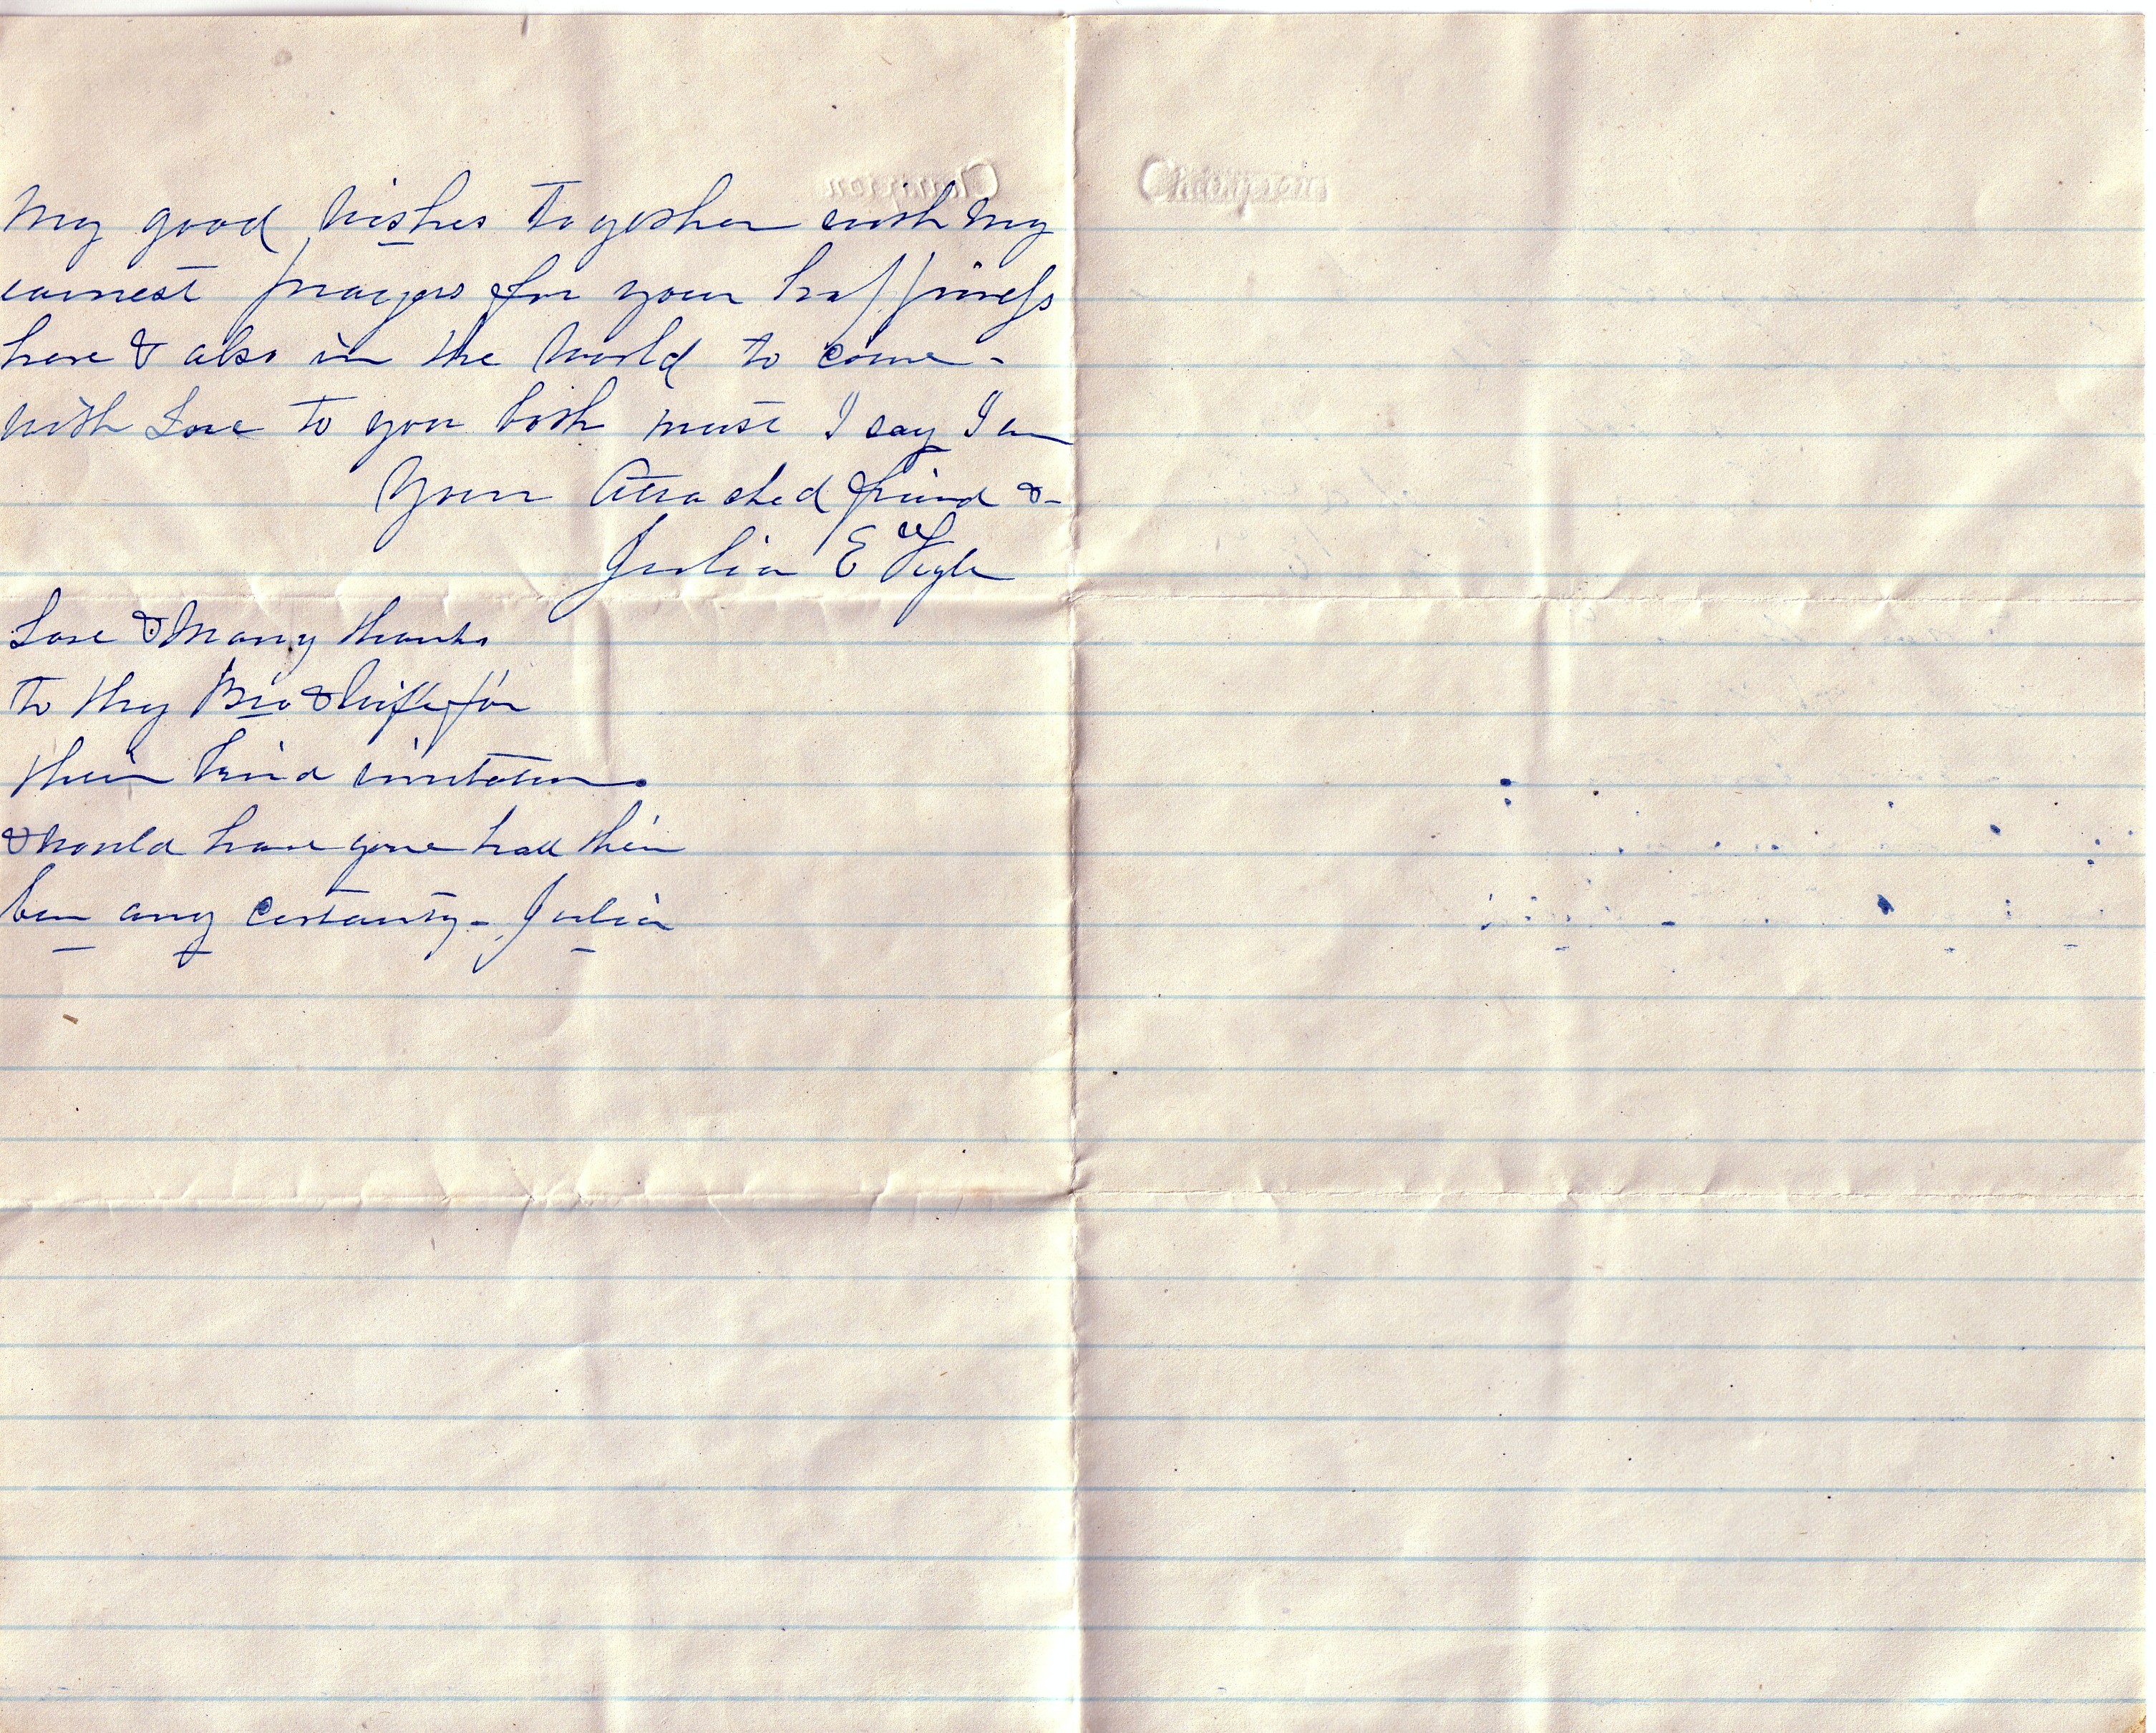 My good wishes together with my
earnest prayers for your happiness
here & also in the World to come -
With Love to you both must I say I am
Your Attached friend &-
Julia E
Love & Many thanks
to thy Bro & Wife for
their kind invitation.
& would have gone had their
ben any certanty - Julia
Champion